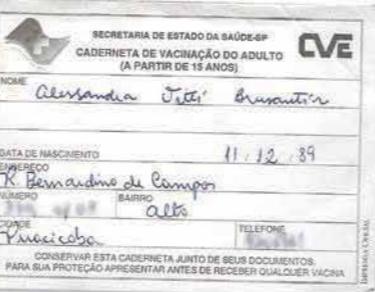 SECRETARIA DE ESTADO DA SAÚDE-SP
CVE
CADERNETA DE VACINAÇÃO DO ADULTO
(A PARTIR DE 15 ANOS)
NOME
Alessandra Vitti
DATA DE NASCIMENTO 11.12.89
ENDEREÇO
R. Bernardino de Campos
NÚMERO BAIRRO
Alto
CIDADE TELEFONE
Piracicaba
CONSERVAR ESTA CADERNETA JUNTO DE SEUS DOCUMENTOS.
PARA SUA PROTEÇÃO APRESENTAR ANTES DE RECEBER QUALQUER VACINA
IMPRENSA OFICIAL